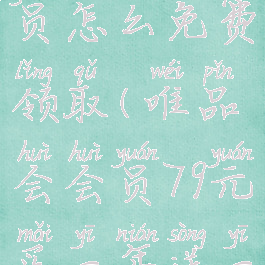 员怎么免费
lǐng qǔ wéi pǐn
领取(唯品
huì huì yuán yuán
会会员79元
mǎi yī nián sòng yī